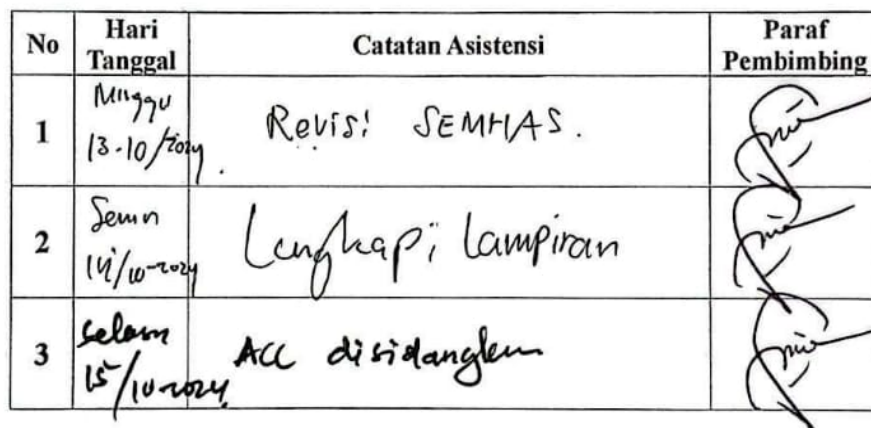 No Hari Tanggal Catatan Asistensi Paraf Pembimbing
1 Minggu 13-10/2024. Revisi SEMHAS.
2 Senin 14/10-2024 Lengkapi Lampiran
3 Selasa 15/10-2024 ACC disidangkan